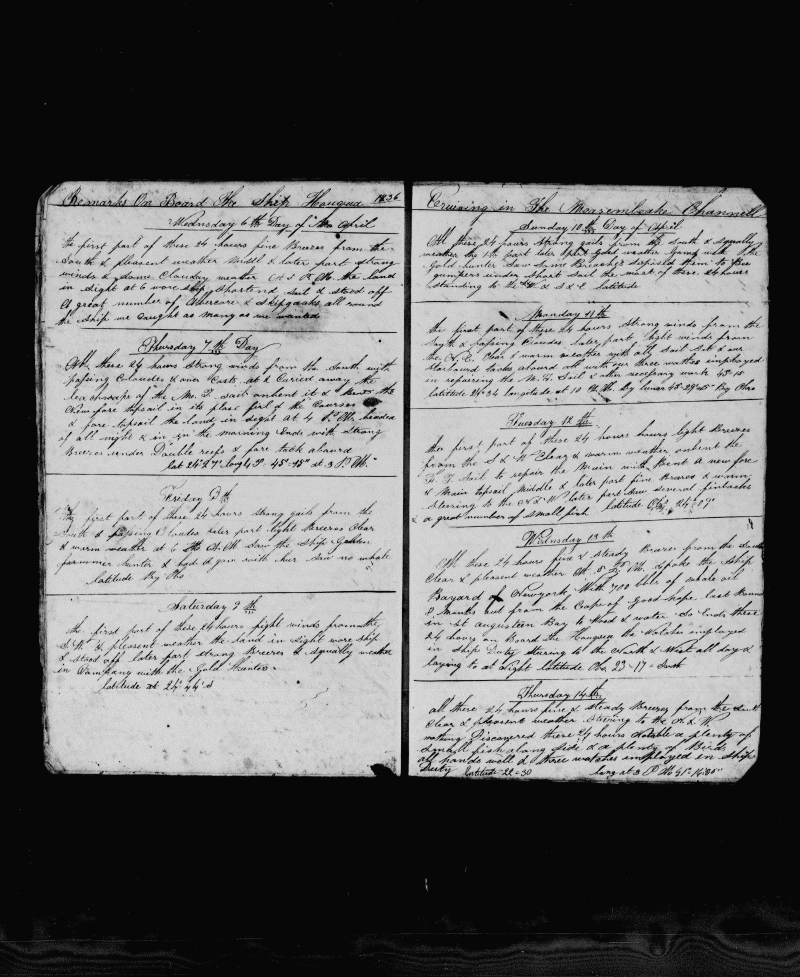 Remarks On Board The Ship Houqua 1836
Wednesday 6th Day of April
the first part of these 24 hours fine Breezes from the
South & pleasent weather Middl & later part strong
winds & Some Clouday weather At 5 P. M. the land
in Sight at 6 wore Ship Shortend Sail & stood off
A great number of Albercure & Skipjacks all round
the Ship we Caught as many as we wanted
Thursday 7th Day
All these 24 hours Strong winds from the South with
passing Cloudes & over Casts at 2 Carried away the
of the M. T. sail unbent it & bent the
New fore topsail in its place furld the Courses
& fore topsail the land in Sight at 4 P. M. headed
of all night & in in the morning Ends with Strong
Breezes under Double reefs & fore tack aboard
Lat 24°27" long 45°-15" at 3 P. M.
Friday 8th
The first part of these 24 hours strong gails from the
South & passing Cloudes later part light Breezes Clear
& warm weather at 6 A. M. Saw the Ship Golden
farmmer hunter & had A gam with hur Saw no whale
latitude By Obs
Saturday 9th
the first part of these 24 hours light winds from the
S. W. & pleasent weather the land in Sight wore Ship
& stood off later part strong Breezes & Squally weather
in Company with the Gold Hunter
latitude at 24° 44' S
Cruising in The Mozembeake Channell
Sunday 10th Day of April
All these 24 hours strong gails from the South & Squally
weather the 1st part later part good weather Gam with the
Gold hunter Saw Some Breaches Supposed them to Bee
gumpers under Short Sail the most of these 24 hours
Standing to the & S & E latitude
Monday 11th
the first part of these 24 hours strong winds from the
South & passing Cloudes later part light winds from
the S. E. Clear & warm weather with all Sail Set & our
Starboard tacks aboard all with our three watches imployed
in repairing the M. T. Sail & other necesary work 45-15
latitude 24°34 longitude at 10 A. M. By lunar 45°29"45" By Obs
Tuesday 12th
the first part of these 24 hours hours light Breezes
from the S & W Clear & warm weather unbent the
T. Sail to repair the Main with Bent A new fore
& Main topsail Middle & later part fine Breezes & warm
Steering to the N & W later part Saw Several finbacks
& a great number of Small fish latitude Obs 24°-09"
Wednsday 13th
All these 24 hours fine & Steady Brezes from the South
Clear & pleasent weather At 5 P. M. Spoke the Ship
Bayard of Newyork With 700 bbls of whale oil
8 Months out from the Cape of good hope last Bound
in St augusteen Bay to Wood & water So Ends these
24 hours on Board the Houqua the Watches imployed
in Ship Duty Stering to the North & West all day &
laying to at Night latitude Obs. 23-17- South
Thursday 14th
all these 24 hours fine & Steady Breezes from the South
Clear & pleasent weather Steering to the N & W
nothing Discovered these 24 hours Exsept a plenty of
Small fish along Side & a plenty of Birds
all hands well & three watches imployed in Ship
Duty latitude 22-30 long at 3 P. M. 41° 14'30"